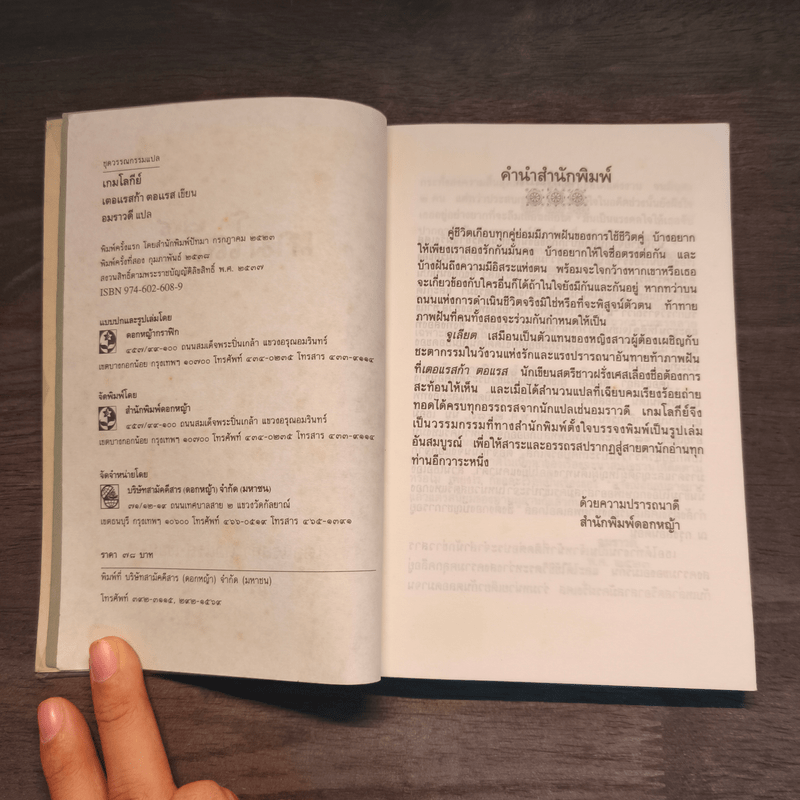 ชุดวรรณกรรมแปล
เกมโลกีย์
เตอแรสก้า ตอแรส เขียน
อมราวดี แปล
พิมพ์ครั้งแรก โดยสำนักพิมพ์ปัทมา กรกฎาคม ๒๕๒๓
พิมพ์ครั้งที่สอง กุมภาพันธ์ ๒๕๓๘
สงวนสิทธิ์ตามพระราชบัญญัติลิขสิทธิ์ พ.ศ. ๒๕๓๗
ISBN 974-602-608-9
แบบปกและรูปเล่มโดย
ดอกหญ้ากราฟิก
๔๕๗/๙๙-๑๐๐ ถนนสมเด็จพระปิ่นเกล้า แขวงอรุณอมรินทร์
เขตบางกอกน้อย กรุงเทพฯ ๑๐๗๐๐ โทรศัพท์ ๔๓๔-๐๒๓๕ โทรสาร ๔๓๓-๙๑๑๔
จัดพิมพ์โดย
สำนักพิมพ์ดอกหญ้า
๔๕๗/๙๙-๑๐๐ ถนนสมเด็จพระปิ่นเกล้า แขวงอรุณอมรินทร์
เขตบางกอกน้อย กรุงเทพฯ ๑๐๗๐๐ โทรศัพท์ ๔๓๔-๐๒๓๕ โทรสาร ๔๓๓-๙๑๑๔
จัดจำหน่ายโดย
บริษัทสามัคคีสาร (ดอกหญ้า) จำกัด (มหาชน)
๗๑/๑๒-๑๙ ถนนเทศบาลสาย ๒ แขวงวัดกัลยาณ์
เขตธนบุรี กรุงเทพฯ ๑๐๖๐๐ โทรศัพท์ ๔๖๖-๐๕๑๙ โทรสาร ๔๖๕-๑๓๙๑
ราคา ๗๘ บาท
พิมพ์ที่ บริษัทสามัคคีสาร (ดอกหญ้า) จำกัด (มหาชน)
โทรศัพท์ ๓๙๒-๓๑๑๕, ๒๙๒-๑๕๖๙
คำนำสำนักพิมพ์
คู่ชีวิตเกือบทุกคู่ย่อมมีภาพฝันของการใช้ชีวิตคู่ บ้างอยาก
ให้เพียงเราสองรักกันมั่นคง บ้างอยากให้ใจซื่อตรงต่อกัน และ
บ้างฝันถึงความมีอิสระแห่งตน พร้อมจะใจกว้างหากเขาหรือเธอ
จะเกี่ยวข้องกับใครอื่นก็ได้ถ้าในใจยังมีกันและกันอยู่ หากทว่าบน
ถนนแห่งการดำเนินชีวิตจริงมิใช่หรือที่จะพิสูจน์ตัวตน ท้าทาย
ภาพฝันที่คนทั้งสองจะร่วมกันกำหนดให้เป็น
จูเลียต เสมือนเป็นตัวแทนของหญิงสาวผู้ต้องเผชิญกับ
ชะตากรรมในวังวนแห่งรักและแรงปรารถนาอันทายท้าภาพฝัน
ที่เตอแรสก้า ตอแรส นักเขียนสตรีชาวฝรั่งเศสเลื่องชื่อต้องการ
สะท้อนให้เห็น และเมื่อได้สำนวนแปลที่เฉียบคมเรียงร้อยถ่าย
ทอดได้ครบทุกอรรถรสจากนักแปลเช่นอมราวดี เกมโลกีย์จึง
เป็นวรรณกรรมที่ทางสำนักพิมพ์ตั้งใจบรรจงพิมพ์เป็นรูปเล่ม
อันสมบูรณ์ เพื่อให้สาระและอรรถรสปรากฏสู่สายตานักอ่านทุก
ท่านอีกวาระหนึ่ง
ด้วยความปรารถนาดี
สำนักพิมพ์ดอกหญ้า